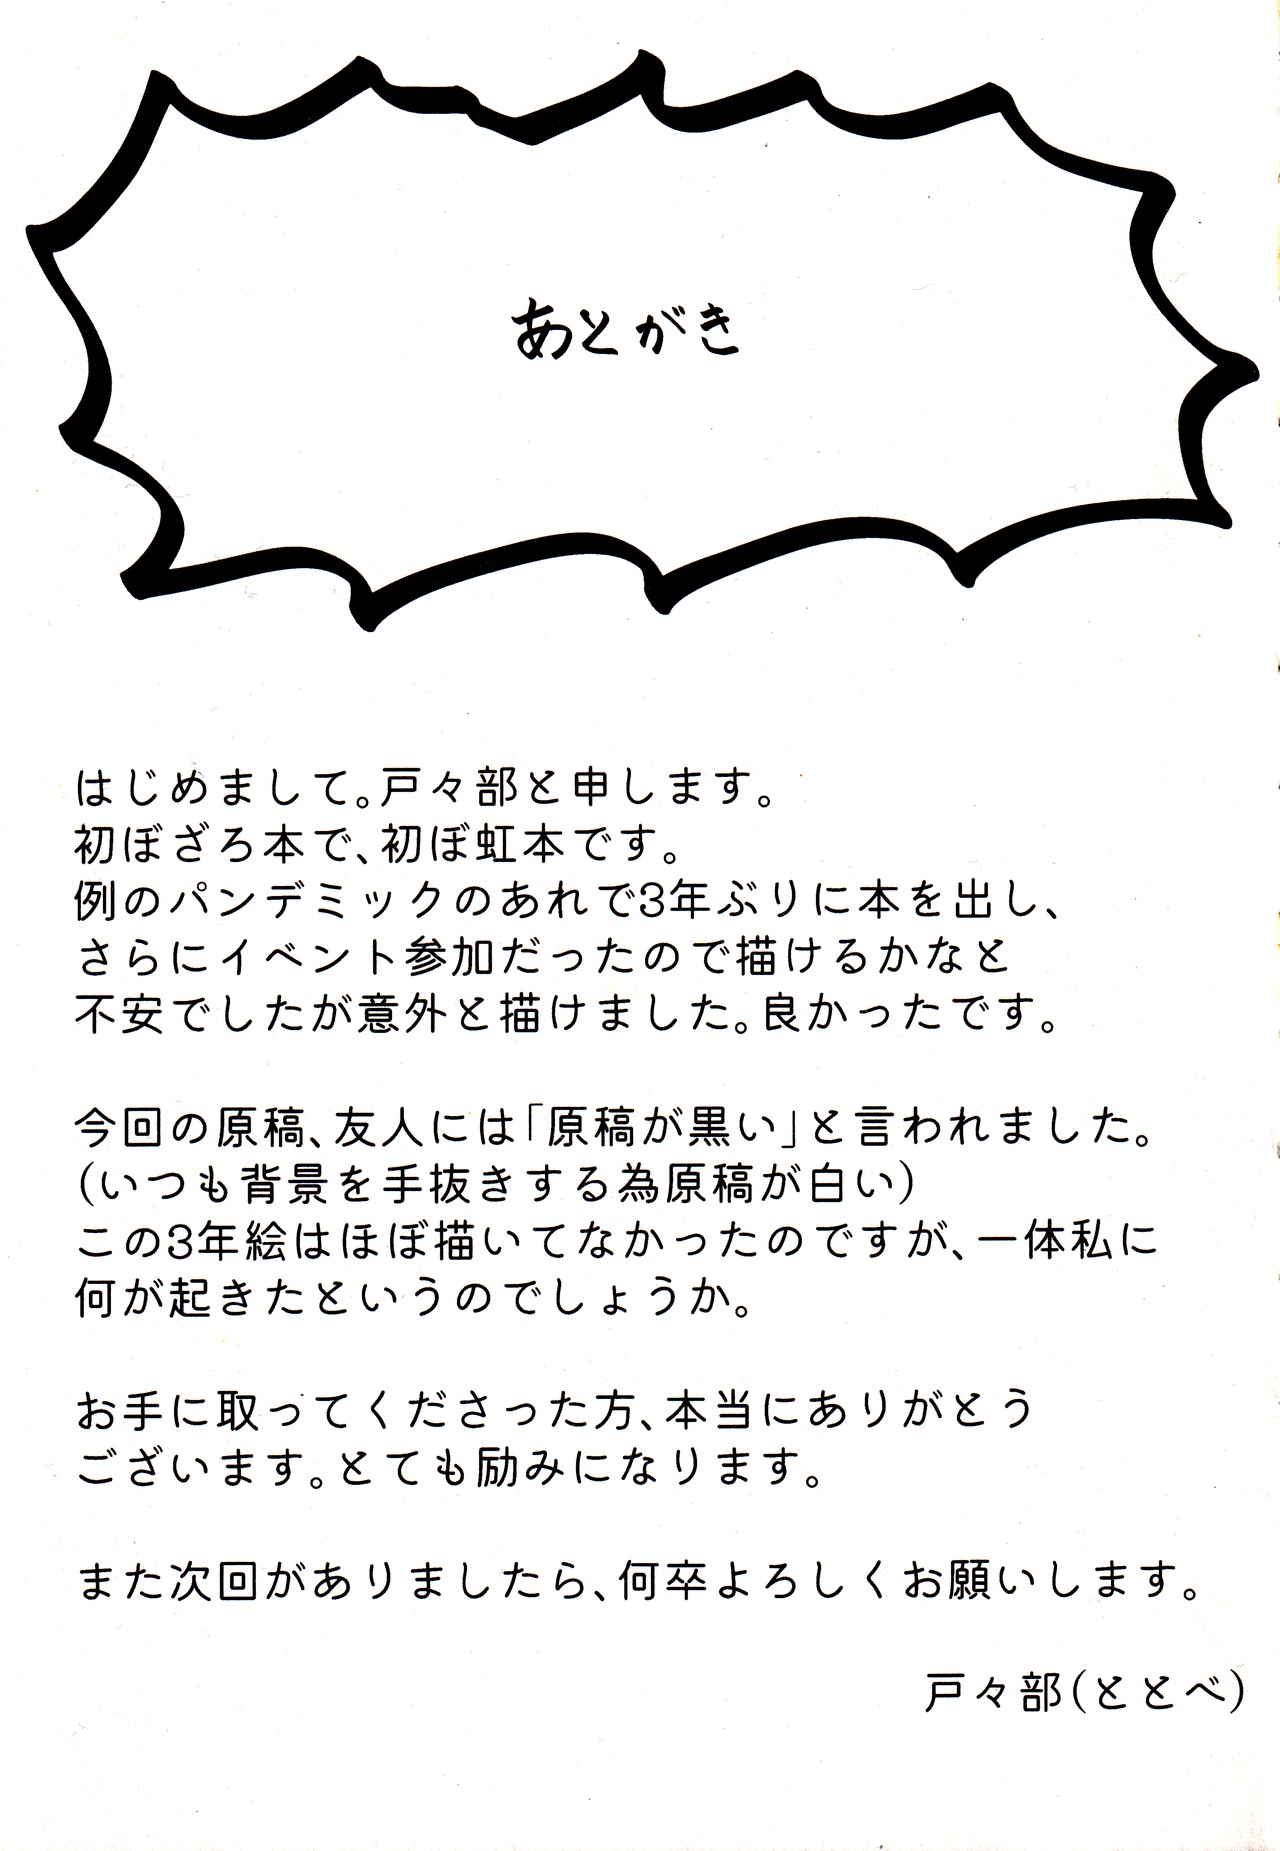 あとがき
はじめまして。戸々部と申します。
初ぼざろ本で、初ぼ虹本です。
例のパンデミックのあれで3年ぶりに本を出し、
さらにイベント参加だったので描けるかなと
不安でしたが意外と描けました。良かったです。
今回の原稿、友人には「原稿が黒い」と言われました。
(いつも背景を手抜きする為原稿が白い)
この3年絵はほぼ描いてなかったのですが、一体私に
何が起きたというのでしょうか。
お手に取ってくださった方、本当にありがとう
ございます。とても励みになります。
また次回がありましたら、何卒よろしくお願いします。
戸々部(ととべ)